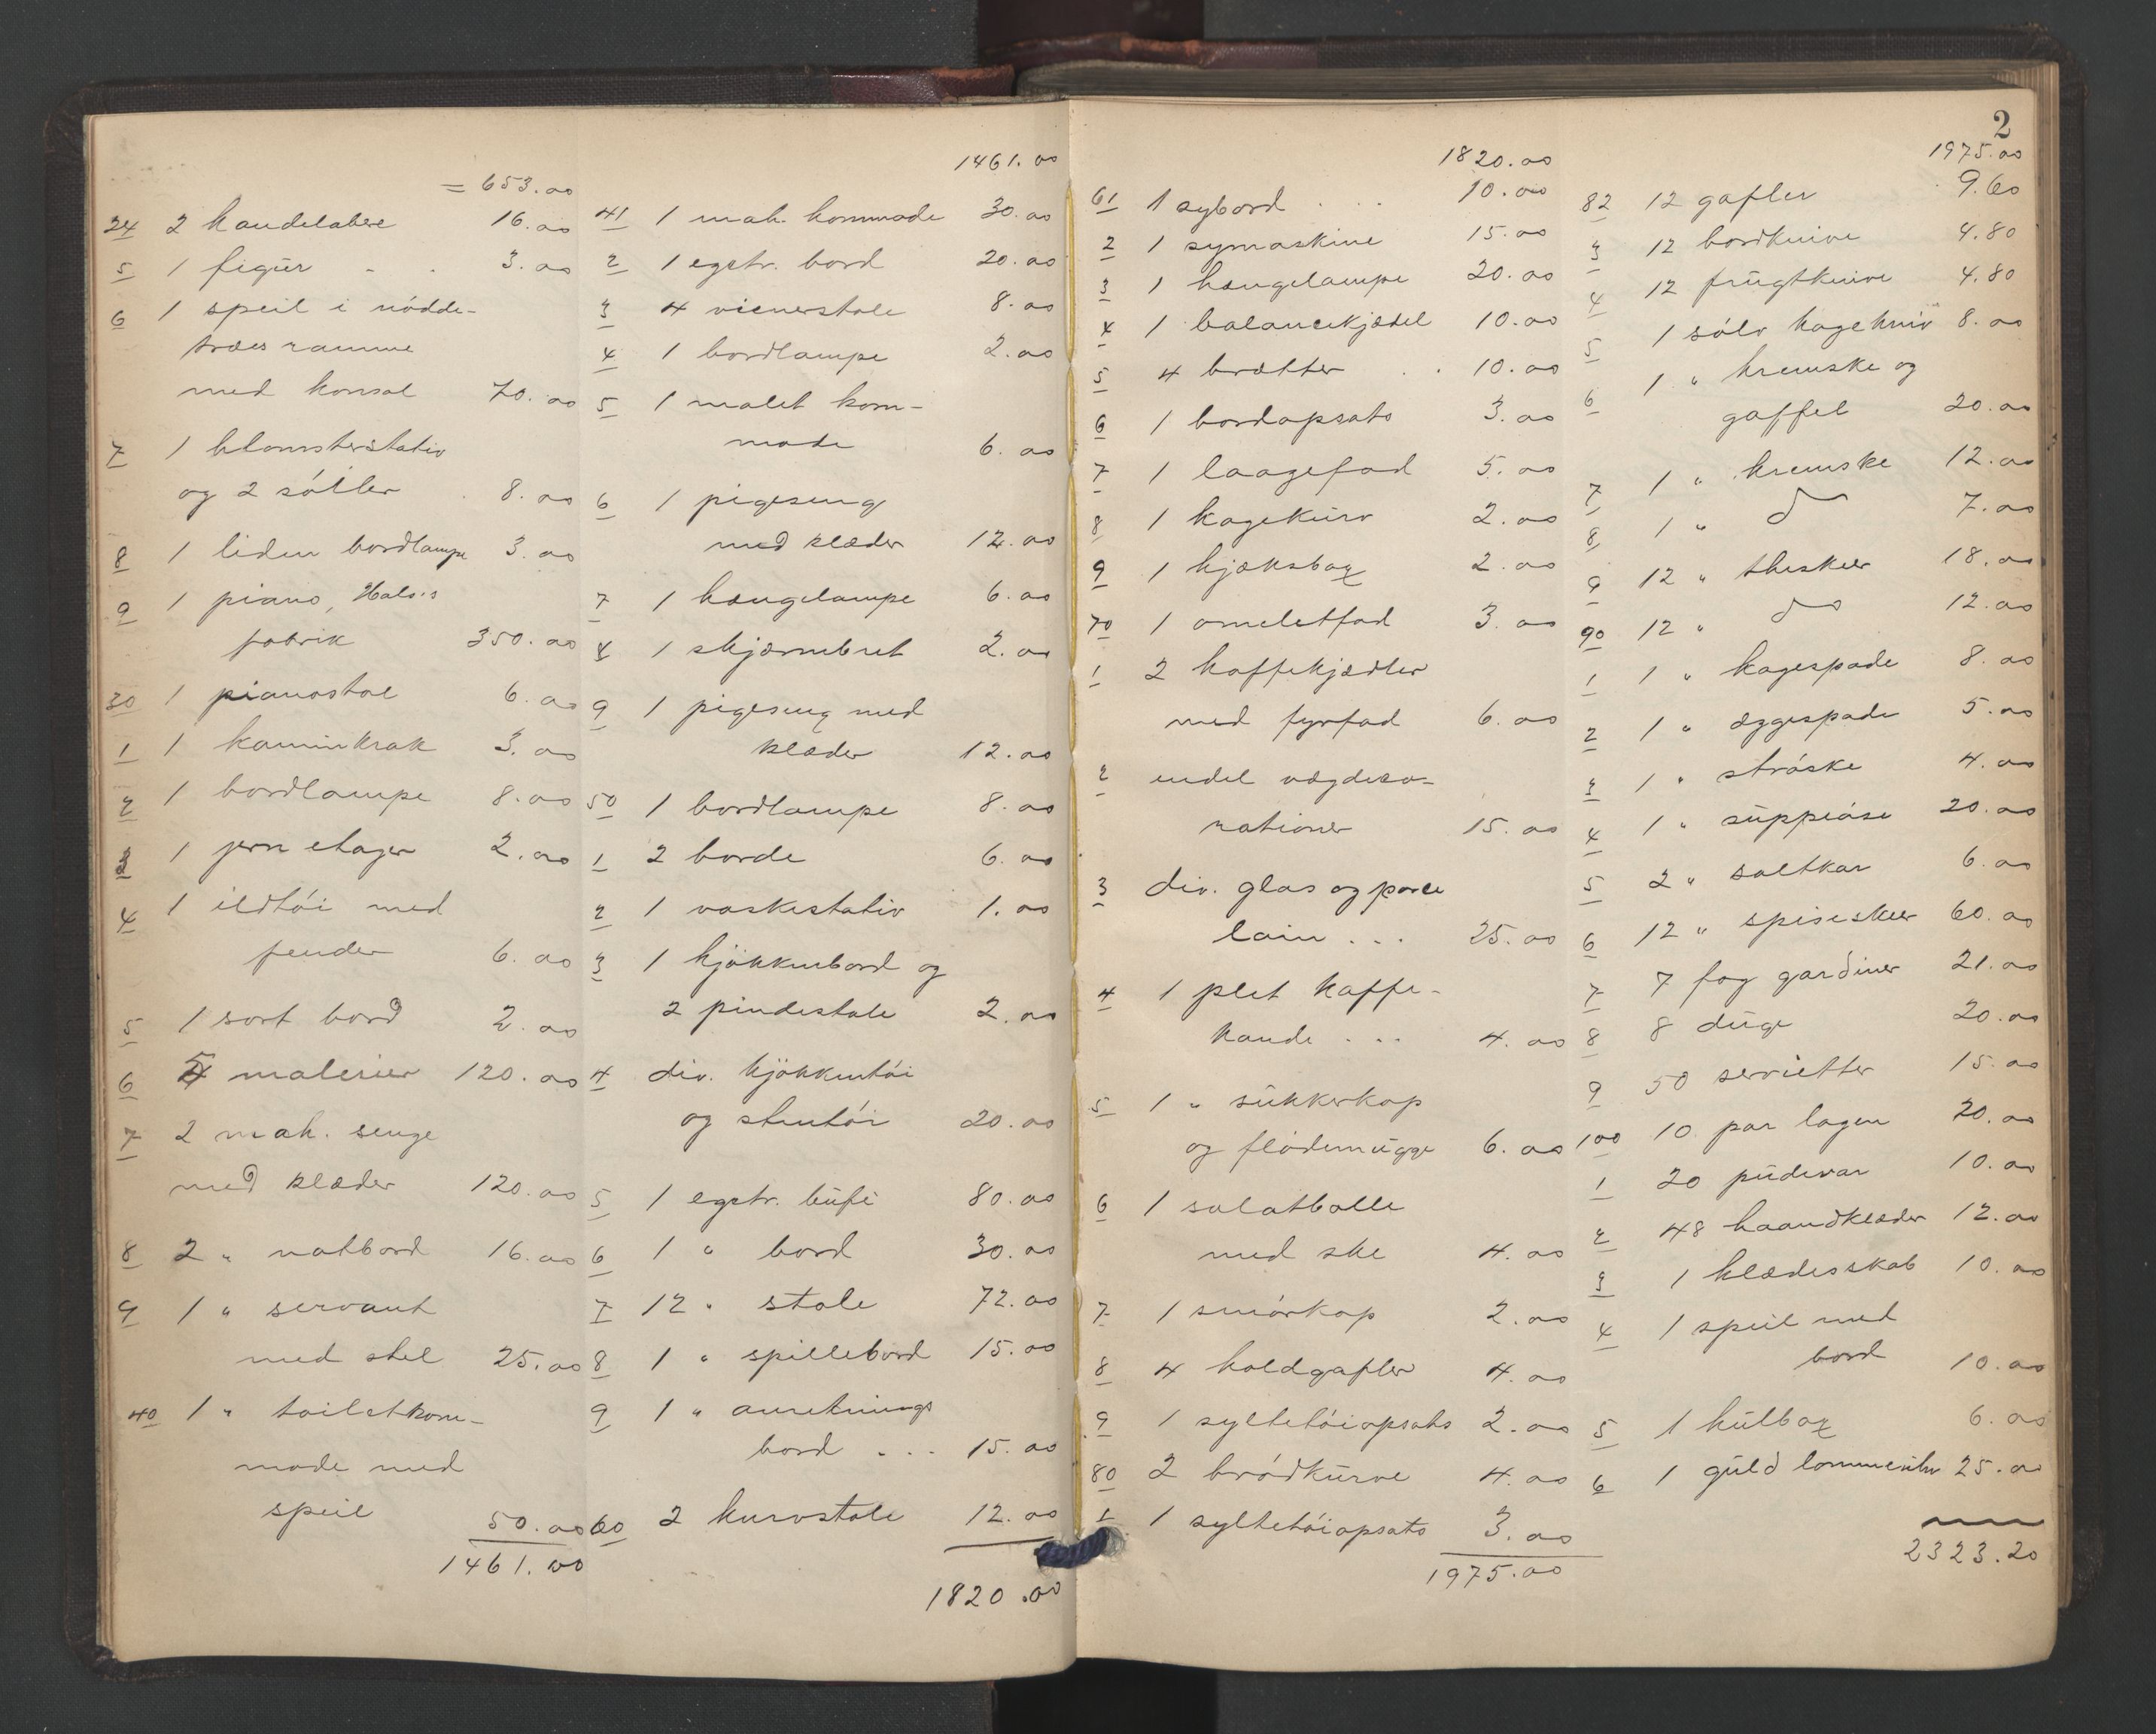 = 653.00
24 2 kandelabre 16.00
5 1 figur - . 3.00
6 1 speil i nödde-
træes ramme
med konsol 70.00
7 1 blomsterstativ
og 2 söiler . 8.00
8 1 liden bordlampe 3.00
9 1 piano, Hals's
fabrik 350.00
30 1 pianostol 6.00
1 1 kaminkrak 3.00
2 1 bordlampe 8.00
3 1 jern etager 2.00
4 1 ildtöi med
fender 6.00
5 1 sort bord 2.00
6 5 malerier 120.00
7 2 mah. senge
med klæder 120.00
8 2 " natbord 16.00
9 1 " servant
med stel 25.00
40 1 " toiletkom-
mode med
speil 50.00
1461.00
1461.00
41 1 mah. kommode 30.00
2 1 egetr. bord 20.00
3 4 vienerstole 8.00
4 1 bordlampe 2.00
5 1 malet kom-
mode 6.00
6 1 pigeseng
med klæder 12.00
7 1 hængelampe 6.00
8 1 skjærmbret 2.00
9 1 pigeseng med
klæder 12.00
50 1 bordlampe 8.00
1 2 borde 6.00
2 1 vaskestativ 1.00
3 1 kjökkenbord og
2 pindestole 2.00
4 div. kjökkentöi
og stentöi 20.00
5 1 egetr. büfé 80.00
6 1 " bord 30.00
7 12 " stole 72.00
8 1 " spillebord 15.00
9 1 " anretnings
bord ... 15.00
60 2 kurvstole 12.00
1820.00
1820.00
61 1 sybord ... 10.00
2 1 symaskine 15.00
3 1 hængelampe 20.00
4 1 balancekjedel 10.00
5 4 brætter . . 10.00
6 1 bordopsats 3.00
7 1 laagefad 5.00
8 1 kagekürv 2.00
9 1 kjæksbox 2.00
70 1 omeletfad 3.00
1 2 kaffekjædler
med fyrfad 6.00
2 endel vægdeko-
rationer 15.00
3 div. glas og porce
lain ... 25.00
4 1 plet kaffe-
kande ... 4.00
5 1 " sükkerkop
og flödemügge 6.00
6 1 salatbolle
med ske 4.00
7 1 smörkop 2.00
8 4 koldgafler 4.00
9 1 syltetöiopsats 2.00
80 2 brödkürve 4.00
1 1 syltetöiopsats 3.00
1975.00
2
1975.00
82 12 gafler 9.60
3 12 bordknive 4.80
4 12 frügtknive 4.80
5 1 sölv kagekniv 8.00
6 1 " kremske og
gaffel 20.00
7 1 " kremske 12.00
8 1 " do 7.00
9 12 " theskeer 18.00
90 12 " do 12.00
1 1 " kagespade 8.00
2 1 " æggespade 5.00
3 1 " ströske 4.00
4 1 " süppeöse 20.00
5 2 " saltkar 6.00
6 12 " spiseskeer 60.00
7 7 fag gardiner 21.00
8 8 düge 20.00
9 50 servietter 15.00
100 10 par lagen 20.00
1 20 püdevar 10.00
2 48 haandklæder 12.00
3 1 klædesskab 10.00
4 1 speil med
bord 10.00
5 1 külbox 6.00
6 1 güld lommeühr 25.00
2323.20